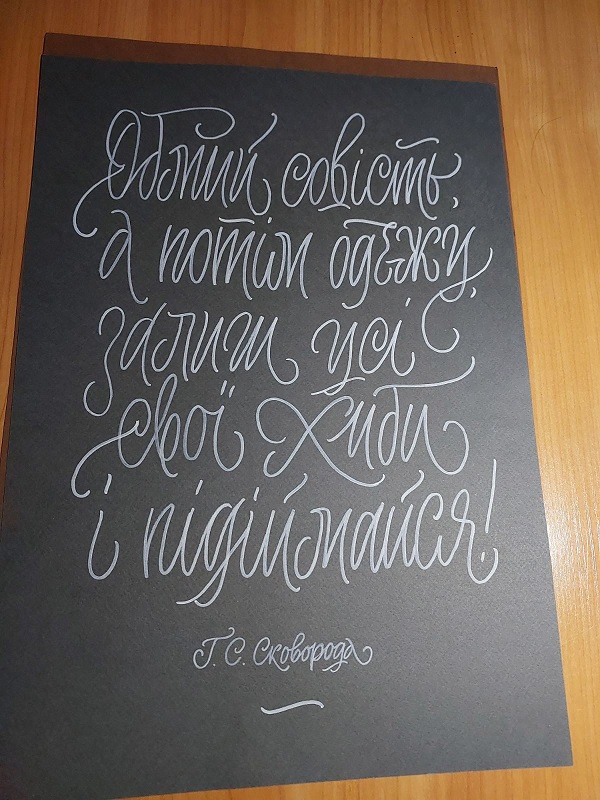 Обмий совість,
а потім одежу,
залиш усі
свої хиби
і підіймайся!
Г. С. Сковорода